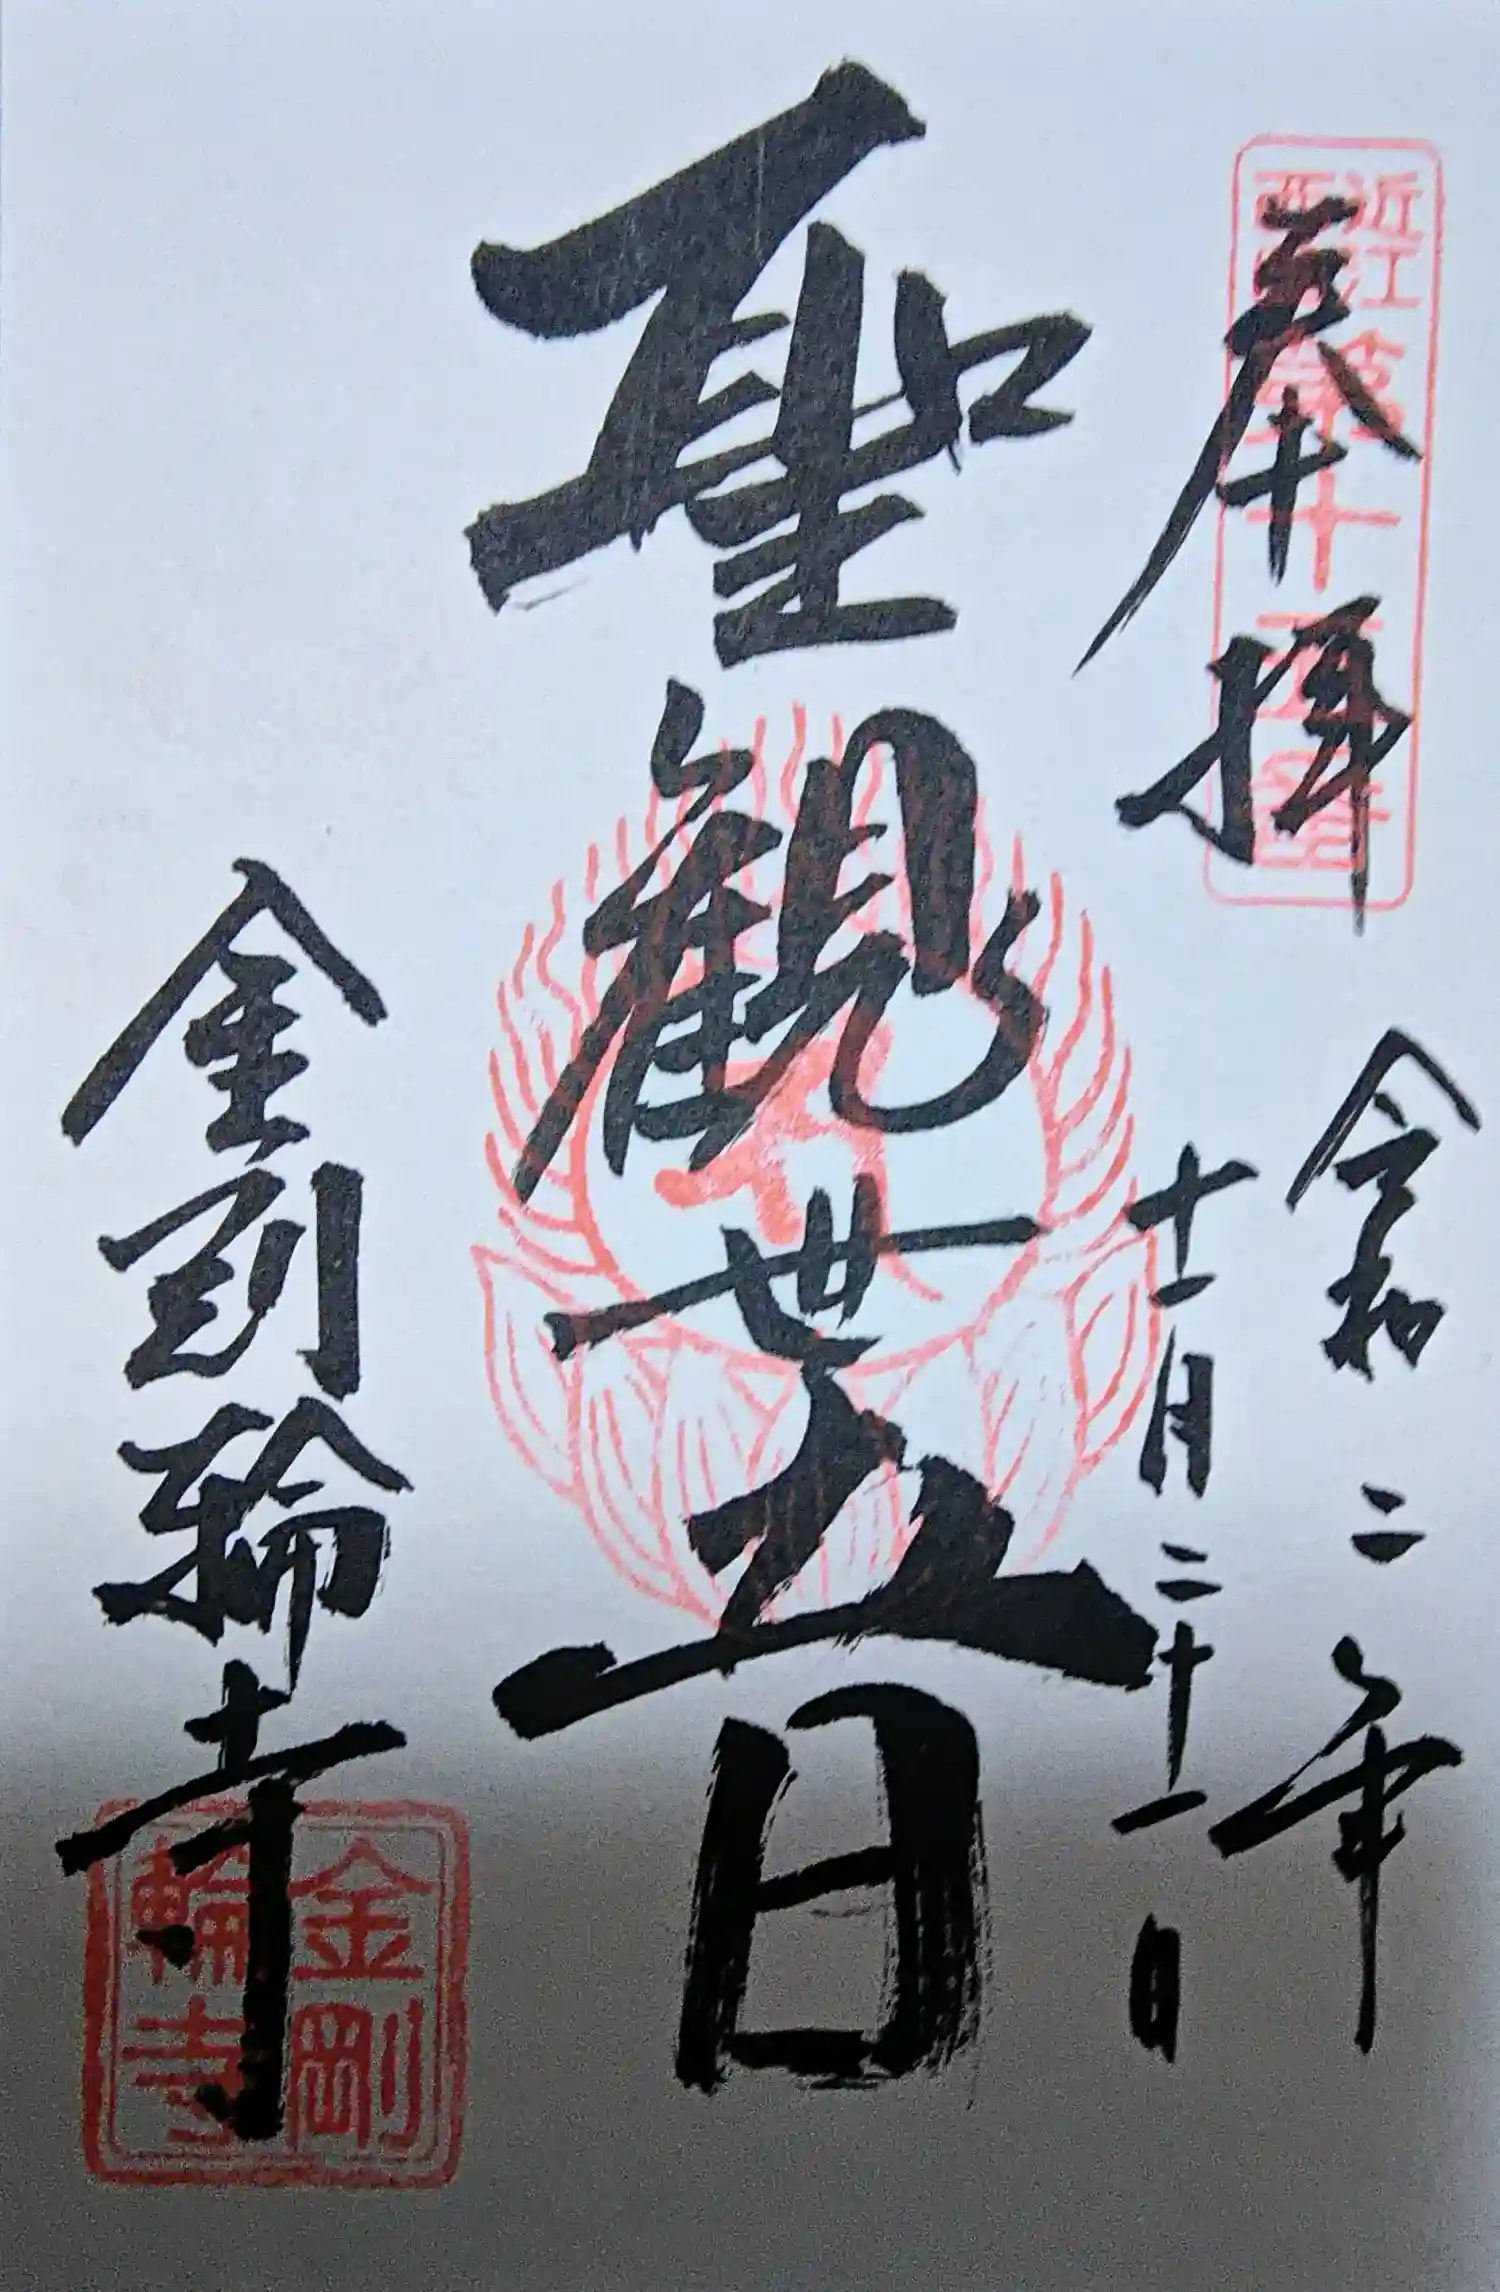 近江
西国
第十五番
奉拝
令和二年
十一月二十一日
聖観世音
金剛輪寺
金剛
輪寺